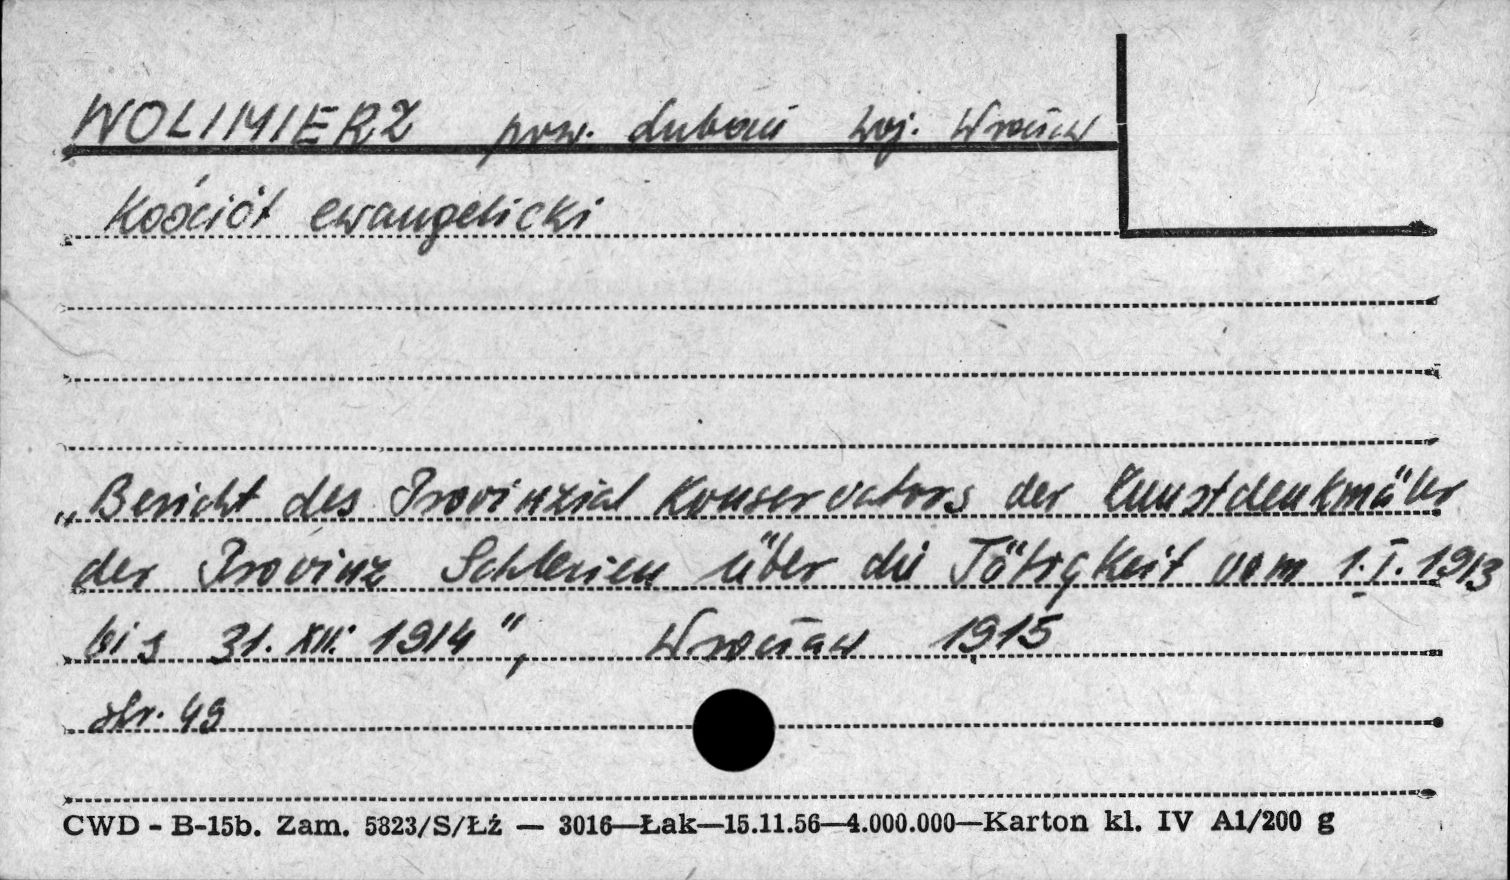 WOLIMIERZ pow. Lubań woj. Wrocław
Kościół ewangelicki
„Bericht des Provinzial Konservators der Kunstdenkmäler
der Provinz Schlesien über die Tätigkeit vom 1.I.1913
bis 31.XII.1914", Wrocław 1915
str. 49
CWD - B-15b. Zam. 5823/S/Łź — 3016—Łak—15.11.56—4.000.000—Karton kl. IV A1/200 g